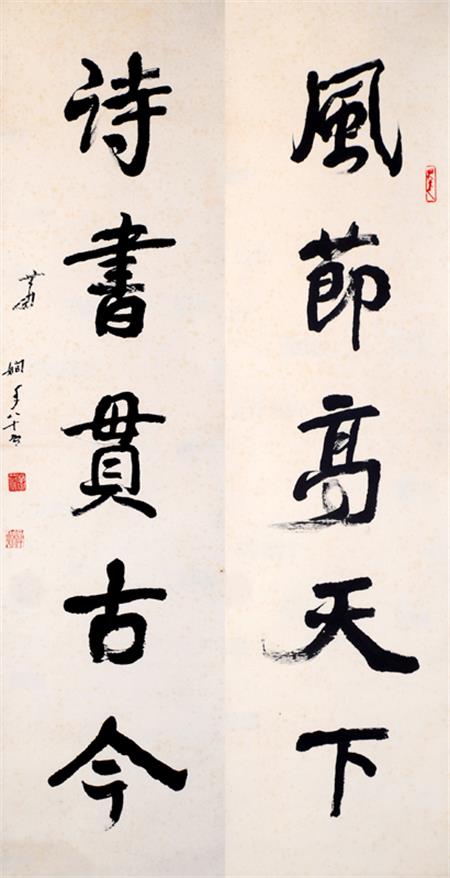 風節高天下
詩書貫古今
蕭嫻年八十